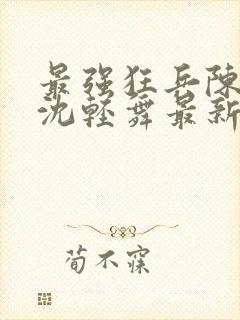 最强狂兵陳
沈轻舞最新
荀不寐